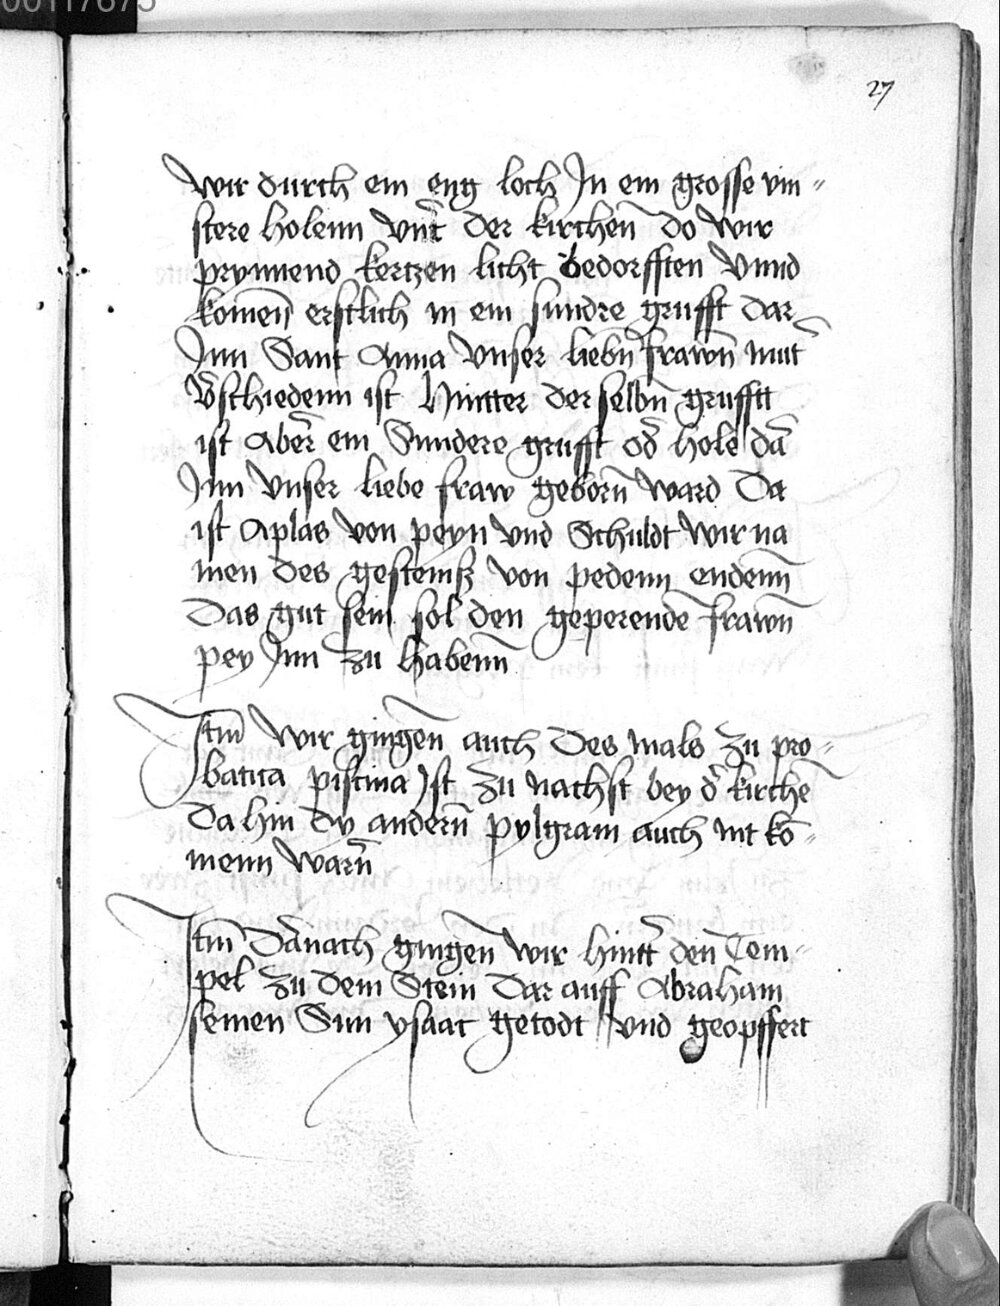 00117675
27
wir durch ein eng loch Jn ein grosse vin„
stere holenn vnt̄ der kirchen̄ do wir
prynnend kertzen licht bedorfften vnnd
komen̄ erstlich in ein sundre grufft dar
Jnn Sant Anna vnser liebn̄ frawn̄ mut̄
v̄schiedenn ist Hintter der selbn̄ grufftt
ist aber̄ ein Sundere grufft od̄ hole da᷈
Jnn vnser liebe fraw geborn̄ ward Da
ist aplas von peyn vnd Schuldt wir na
men des gesteinß von pedenn endenn̄
Das gut sein sol den geperende᷈ frawn̄
pey Jnn zu habenn̄
Jtm̄ wir gingen̄ auch des mals zu pro„
batica piscina Jst zu nachst bey d̄ kirche᷈
Da hin dy andern̄ pylgram auch nit ko᷈„
menn warn̄
Jtm̄ Da᷈nach gingen̄ wir hintt̄ den̄ Tem„
pel zu dem Stein dar auff Abraham
seinen Sun ysaac getodt vnd geopffert